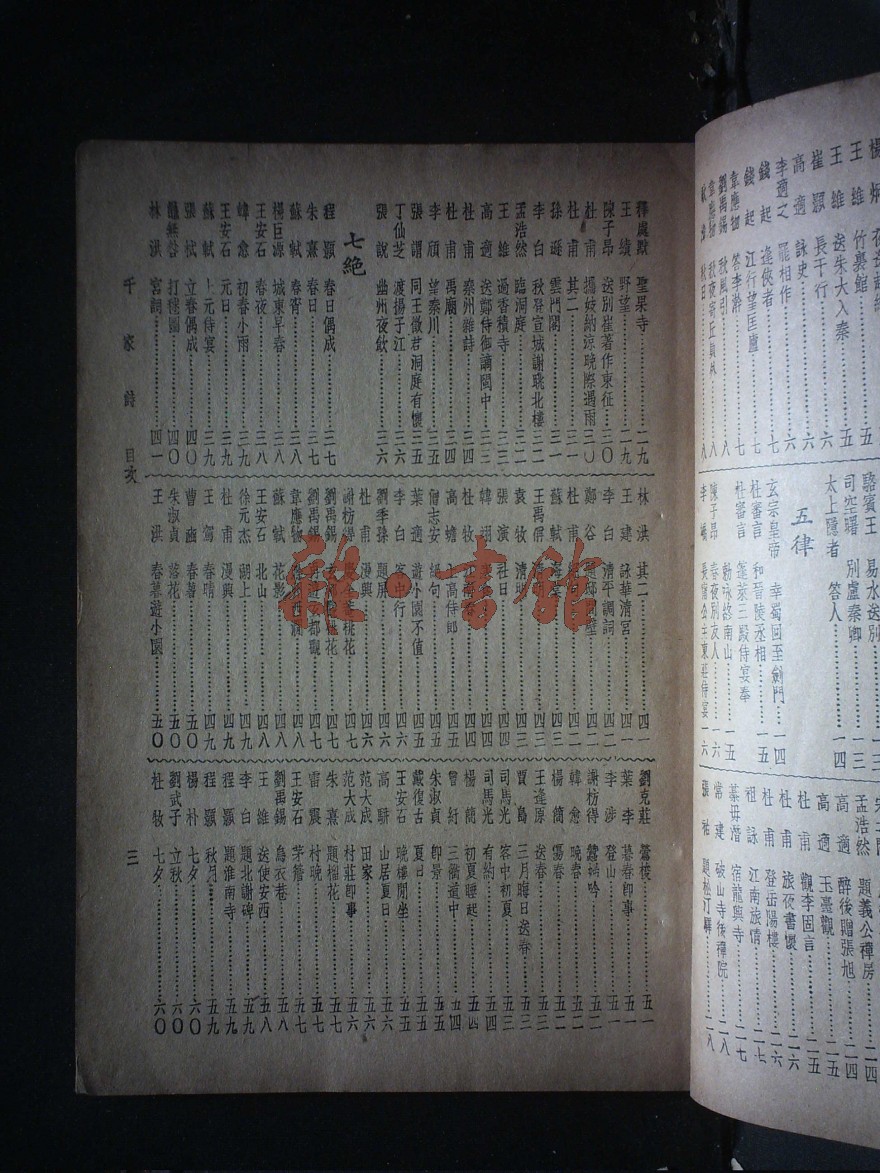 釋處默 聖果寺 二九
王績 野望 二九
陳子昂 送別崔著作東征 三〇
杜甫 攜妓納涼晚際遇雨 三〇
杜甫 其二 三一
孫逖 雲門閣 三一
李白 秋登宣城謝朓北樓 三二
孟浩然 臨洞庭 三二
王維 過香積寺
高適 送鄭侍御謫閩中 三三
杜甫 秦州雜詩 三四
杜甫 禹廟 三四
李頎 望秦川 三五
張謂 同王徵君洞庭有懷 三五
丁仙芝 渡揚子江 三六
張說 幽州夜飲 三六
七絕
程顥 春日偶成 三七
朱熹 春日 三七
蘇軾 春宵 三八
楊巨源 城東早春 三八
王安石 春夜 三八
韓愈 初春小雨 三九
王安石 元日 三九
蘇軾 上元侍宴 三九
張栻 立春偶成 四〇
打毬圖 四〇
林洪 宮詞 四一
林洪 其二 四一
王建 詠華清宮 四一
李白 清平調詞 四二
鄭谷 四二
杜甫 四二
蘇軾 四二
王禹偁 清明 四三
袁牧 清明 四三
張演 社日 四三
韓翃 四四
杜牧 四四
高蟾 上高侍郎 四五
僧志安 絕句 四五
葉適 遊小園不值 四五
李白 客中行 四六
劉季孫 題屏 四六
杜甫 漫興 四六
謝枋得 桃花 四七
劉禹錫 四七
劉禹錫 四七
韋應物 滁州西澗 四八
蘇軾 花影 四八
王安石 北山 四八
徐元杰 湖上 四九
杜甫 漫興 四九
王駕 春晴 四九
曹豳 春暮 五〇
朱淑貞 落花 五〇
王淇 春暮遊小園 五〇
劉克莊 鶯梭 五一
葉李 暮春即事 五一
李涉 登山 五一
謝枋得 蠶婦吟 五二
韓愈 晚春 五二
楊簡 傷春 五二
王逢原 送春 五三
賈島 三月晦日送春 五三
司馬光 客中初夏 五三
司馬光 有約 五四
楊簡 初夏睡起 五四
曾紆 三衢道中 五四
朱淑貞 即景 五五
戴復古 夏日 五五
王安石 晚樓閒坐 五五
高駢 山居夏日 五六
范大成 田家 五六
范大成 村莊即事 五六
朱熹 題榴花 五七
雷震 村晚 五七
王安石 茅簷 五七
劉禹錫 烏衣巷 五八
王維 送使安西 五八
李白 題北謝碑 五九
程顥 題淮南寺 五九
程顥 秋月 五九
楊朴 七夕 六〇
劉武子 立秋 六〇
杜牧 七夕 六〇
千家詩 目次
三
王維 竹裏館
王維 送朱大入秦 五
崔顥 長干行 六
高適 詠史 六
李適之 罷相作 六
錢起 逢俠者 七
錢起 江行望匡廬 七
韋應物 答李澣 七
劉禹錫 秋風引 八
駱賓王 易水送別 一三
司空曙 別盧秦卿 一四
太上隱者 答人
五律
玄宗皇帝 幸蜀回至劍門 一四
杜審言 和晉陵丞相 一五
杜審言 蓬萊三殿侍宴奉
勅咏終南山 一五
陳子昂 春夜別友人 一六
李嶠 長甯公主東莊侍宴 一六
孟浩然 題義公禪房 二四
高適 醉後贈張旭 二四
高適 玉臺觀 二五
杜甫 觀李固言 二五
杜甫 旅夜書懷 二六
杜甫 登岳陽樓 二六
祖詠 江南旅情 二七
綦毋潛 宿龍興寺 二七
常建 破山寺後禪院 二八
張祜 題松汀驛 二八
雜·書館